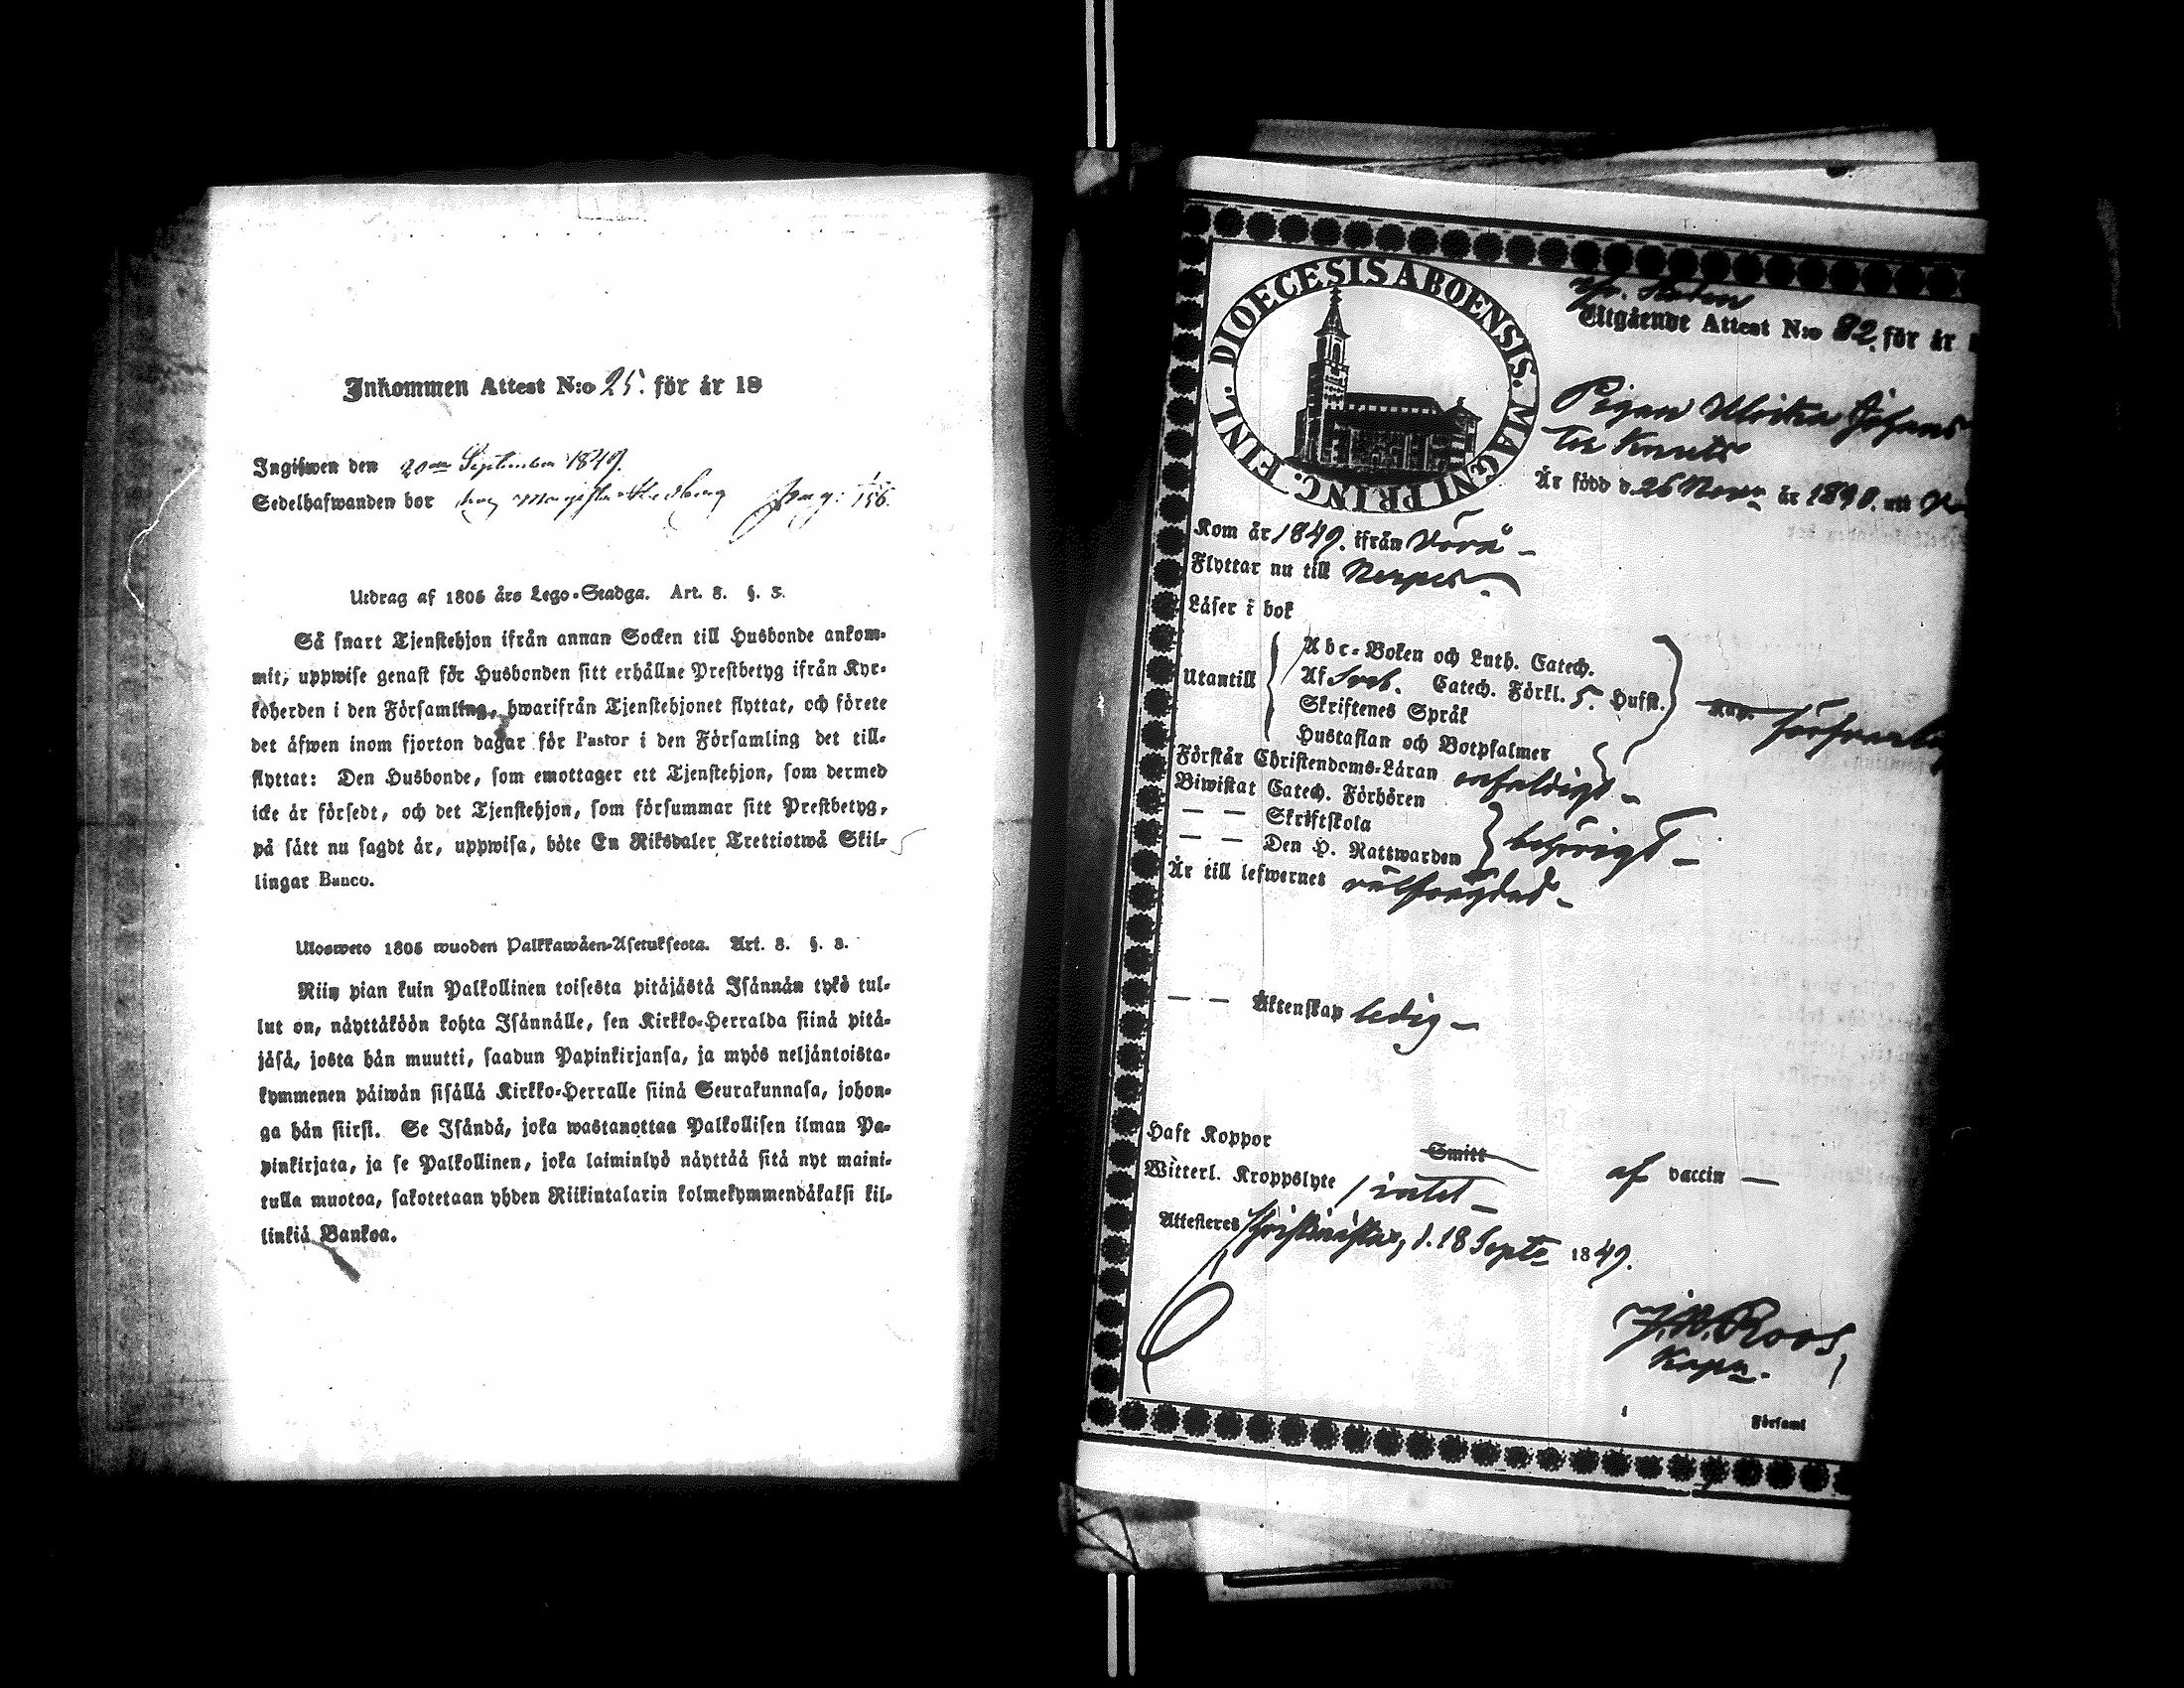 Inkommen Attest N:o 25. för år 18
Ingifwen den 20de September 1849.
Sedelhafwanden bor hos pag: 156.
Utdrag af 1805 års Lego-Stadga. Art. 8. §. 3.
Så snart Tjenstehjon ifrån annan Socken till Husbonde ankom-
mit, uppwise genast för Husbonden sitt erhållne Prestbetyg ifrån Kyr-
koherden i den Församling, hwarifrån Tjenstehjonet flyttat, och förete
det äfwen inom fjorton dagar för Pastor i den Församling det till-
flyttat: Den Husbonde, som emottager ett Tjenstehjon, som dermed
icke är försedt, och det Tjenstehjon, som försummar sitt Prestbetyg,
på sätt nu sagdt är, uppwisa, böte En Riksdaler Trettiotwå Skil-
lingar Banco.
Ulosweto 1805 wuoden Palkkawäen-Asetuksesta. Art. 8. §. 3.
Niin pian kuin Palkollinen toisesta pitäjästä Isännän tykö tul-
lut on, näyttäköön kohta Isännälle, sen Kirkko-Herralda siinä pitä-
jäsä, josta hän muutti, saadun Papinkirjansa, ja myös neljäntoista-
kymmenen päiwän sisällä Kirkko-Herralle siinä Seurakunnasa, johon-
ga hän siirsi. Se Isändä, joka wastanottaa Palkollisen ilman Pa-
pinkirjata, ja se Palkollinen, joka laiminlyö näyttää sitä nyt maini-
tulla muotoa, sakotetaan yhden Riikintalarin kolmekymmendäkaksi kil-
linkiä Bankoa.
DIOECESIS ABOENSIS. MAGNI PRINC. FINL.
Utgående Attest N:o 82. för år
Pigan Ulrika Johans
Är född d. 26 Novr år att
Kom år 1849. ifrån Vörå -
Flyttar nu till Nerpes -
Läser i bok
Utantill
Abc-Boken och Luth. Catech.
Af Sveb. Catech. Förkl. 5. Hufst.
Skriftenes Språk
Hustaflan och Botpsalmer
Förstår Christendoms-Läran enfaldigt -
Biwistat Catech. Förhören
— — Skriftskola
— — Den H. Nattwarden
behörigt -
Är till lefwernet välfrägdad -
— — Äktenskap ledig -
Haft Koppor Smitt af vaccin —
Witterl. Kroppslyte intet -
Attesteras Christinestad, d. 18 Septr 1849.
J. N. Roos,
Kapn.
i Församl